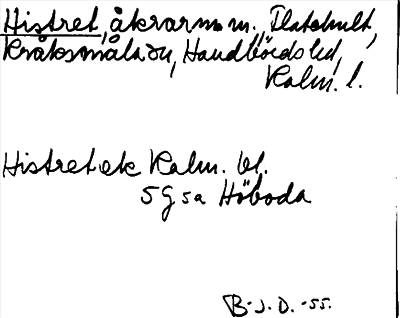 Histret, åkrar m.m., Flatehult,
Kråksmåla sn, Handbörds hd,
Kalm. l.
Histret ek Kalm. bl.
5 G sa Höboda
B.J.D. -55.